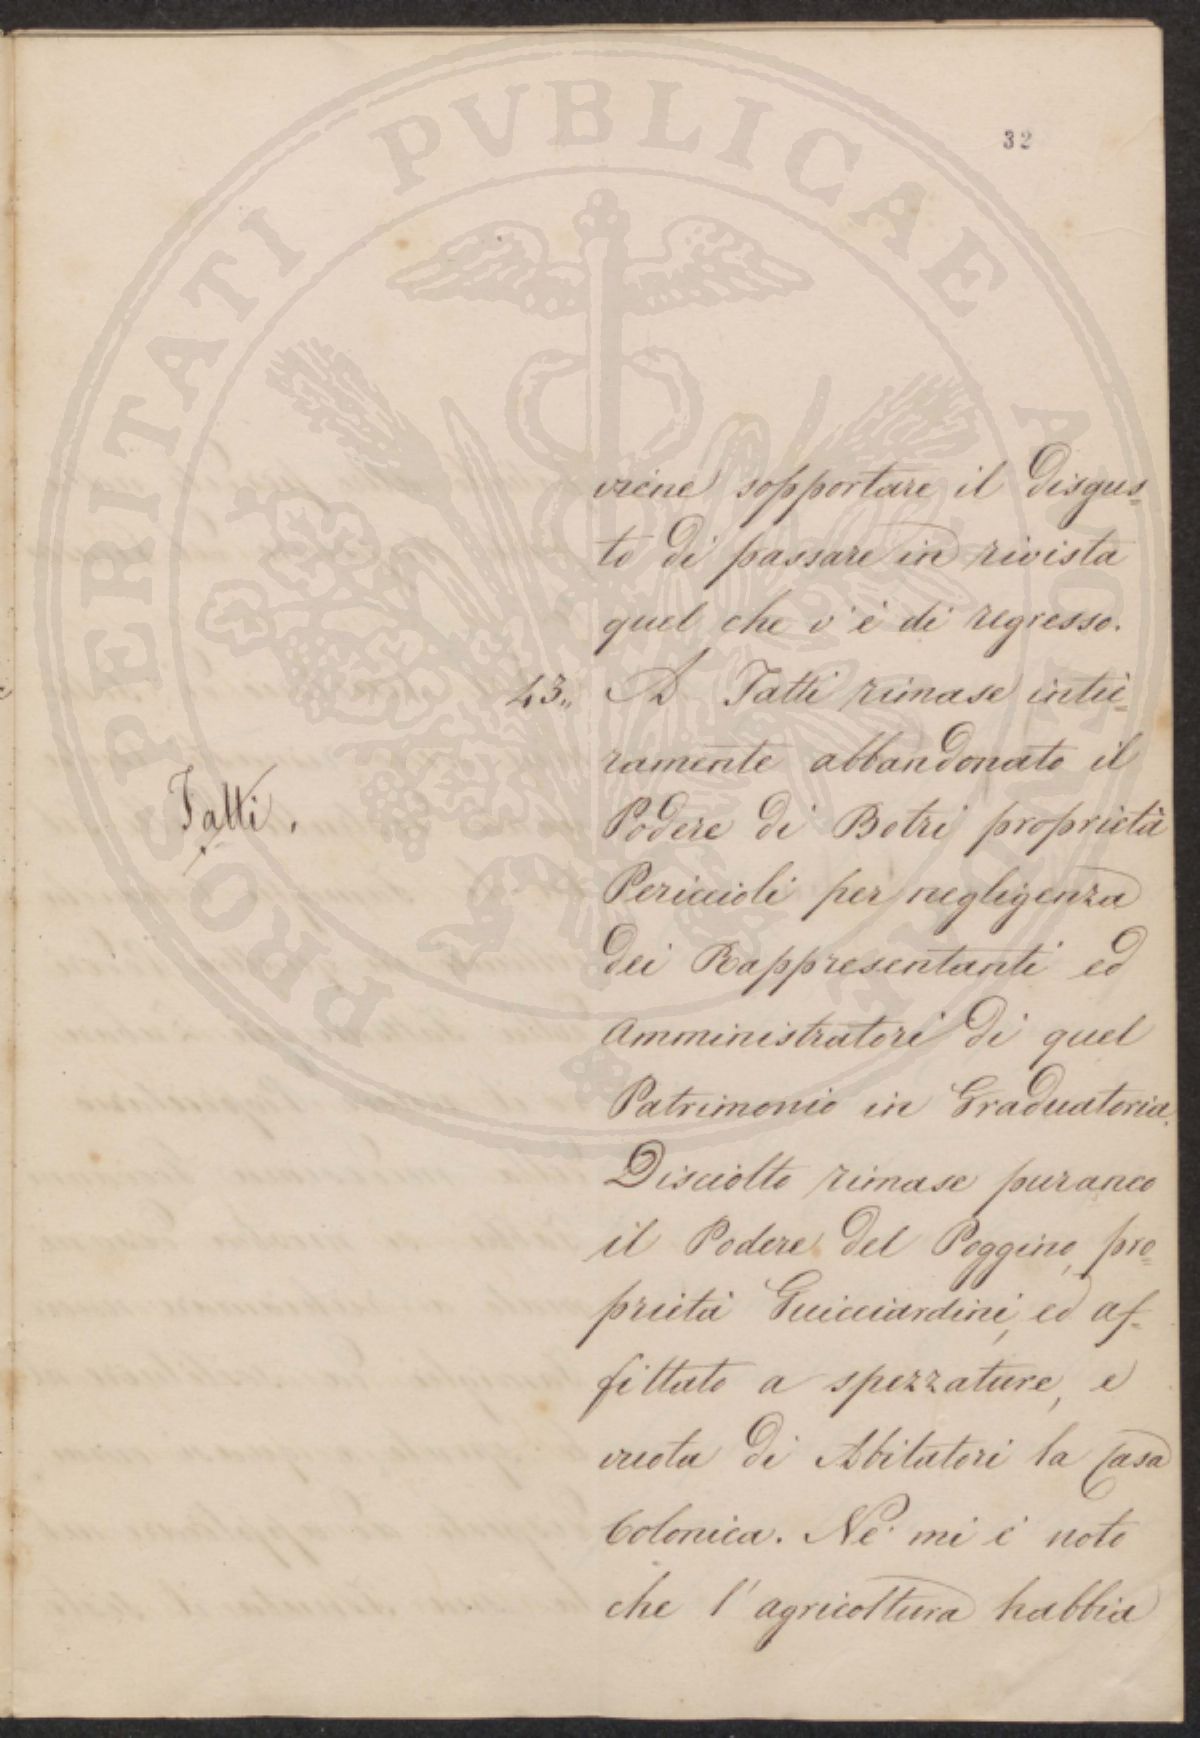 32
viene sopportare il disgus=
to di passare in rivista
quel che v'è di regresso.
43„ A Tatti rimase intie=
ramente abbandonato il
Podere di Botri proprietà
Periccioli per negligenza
dei Rappresentanti ed
Amministratori di quel
Patrimonio in Graduatoria.
Disciolto rimase puranco
il Podere del Poggino, pro=
prietà Guicciardini, ed af=
fittato a spezzature, e
vuota di Abitatori la Casa
Colonica. Nè mi è noto
che l'agricoltura habbia
Tatti.
PROSPERITATI PVBLICAE AVGENDAE